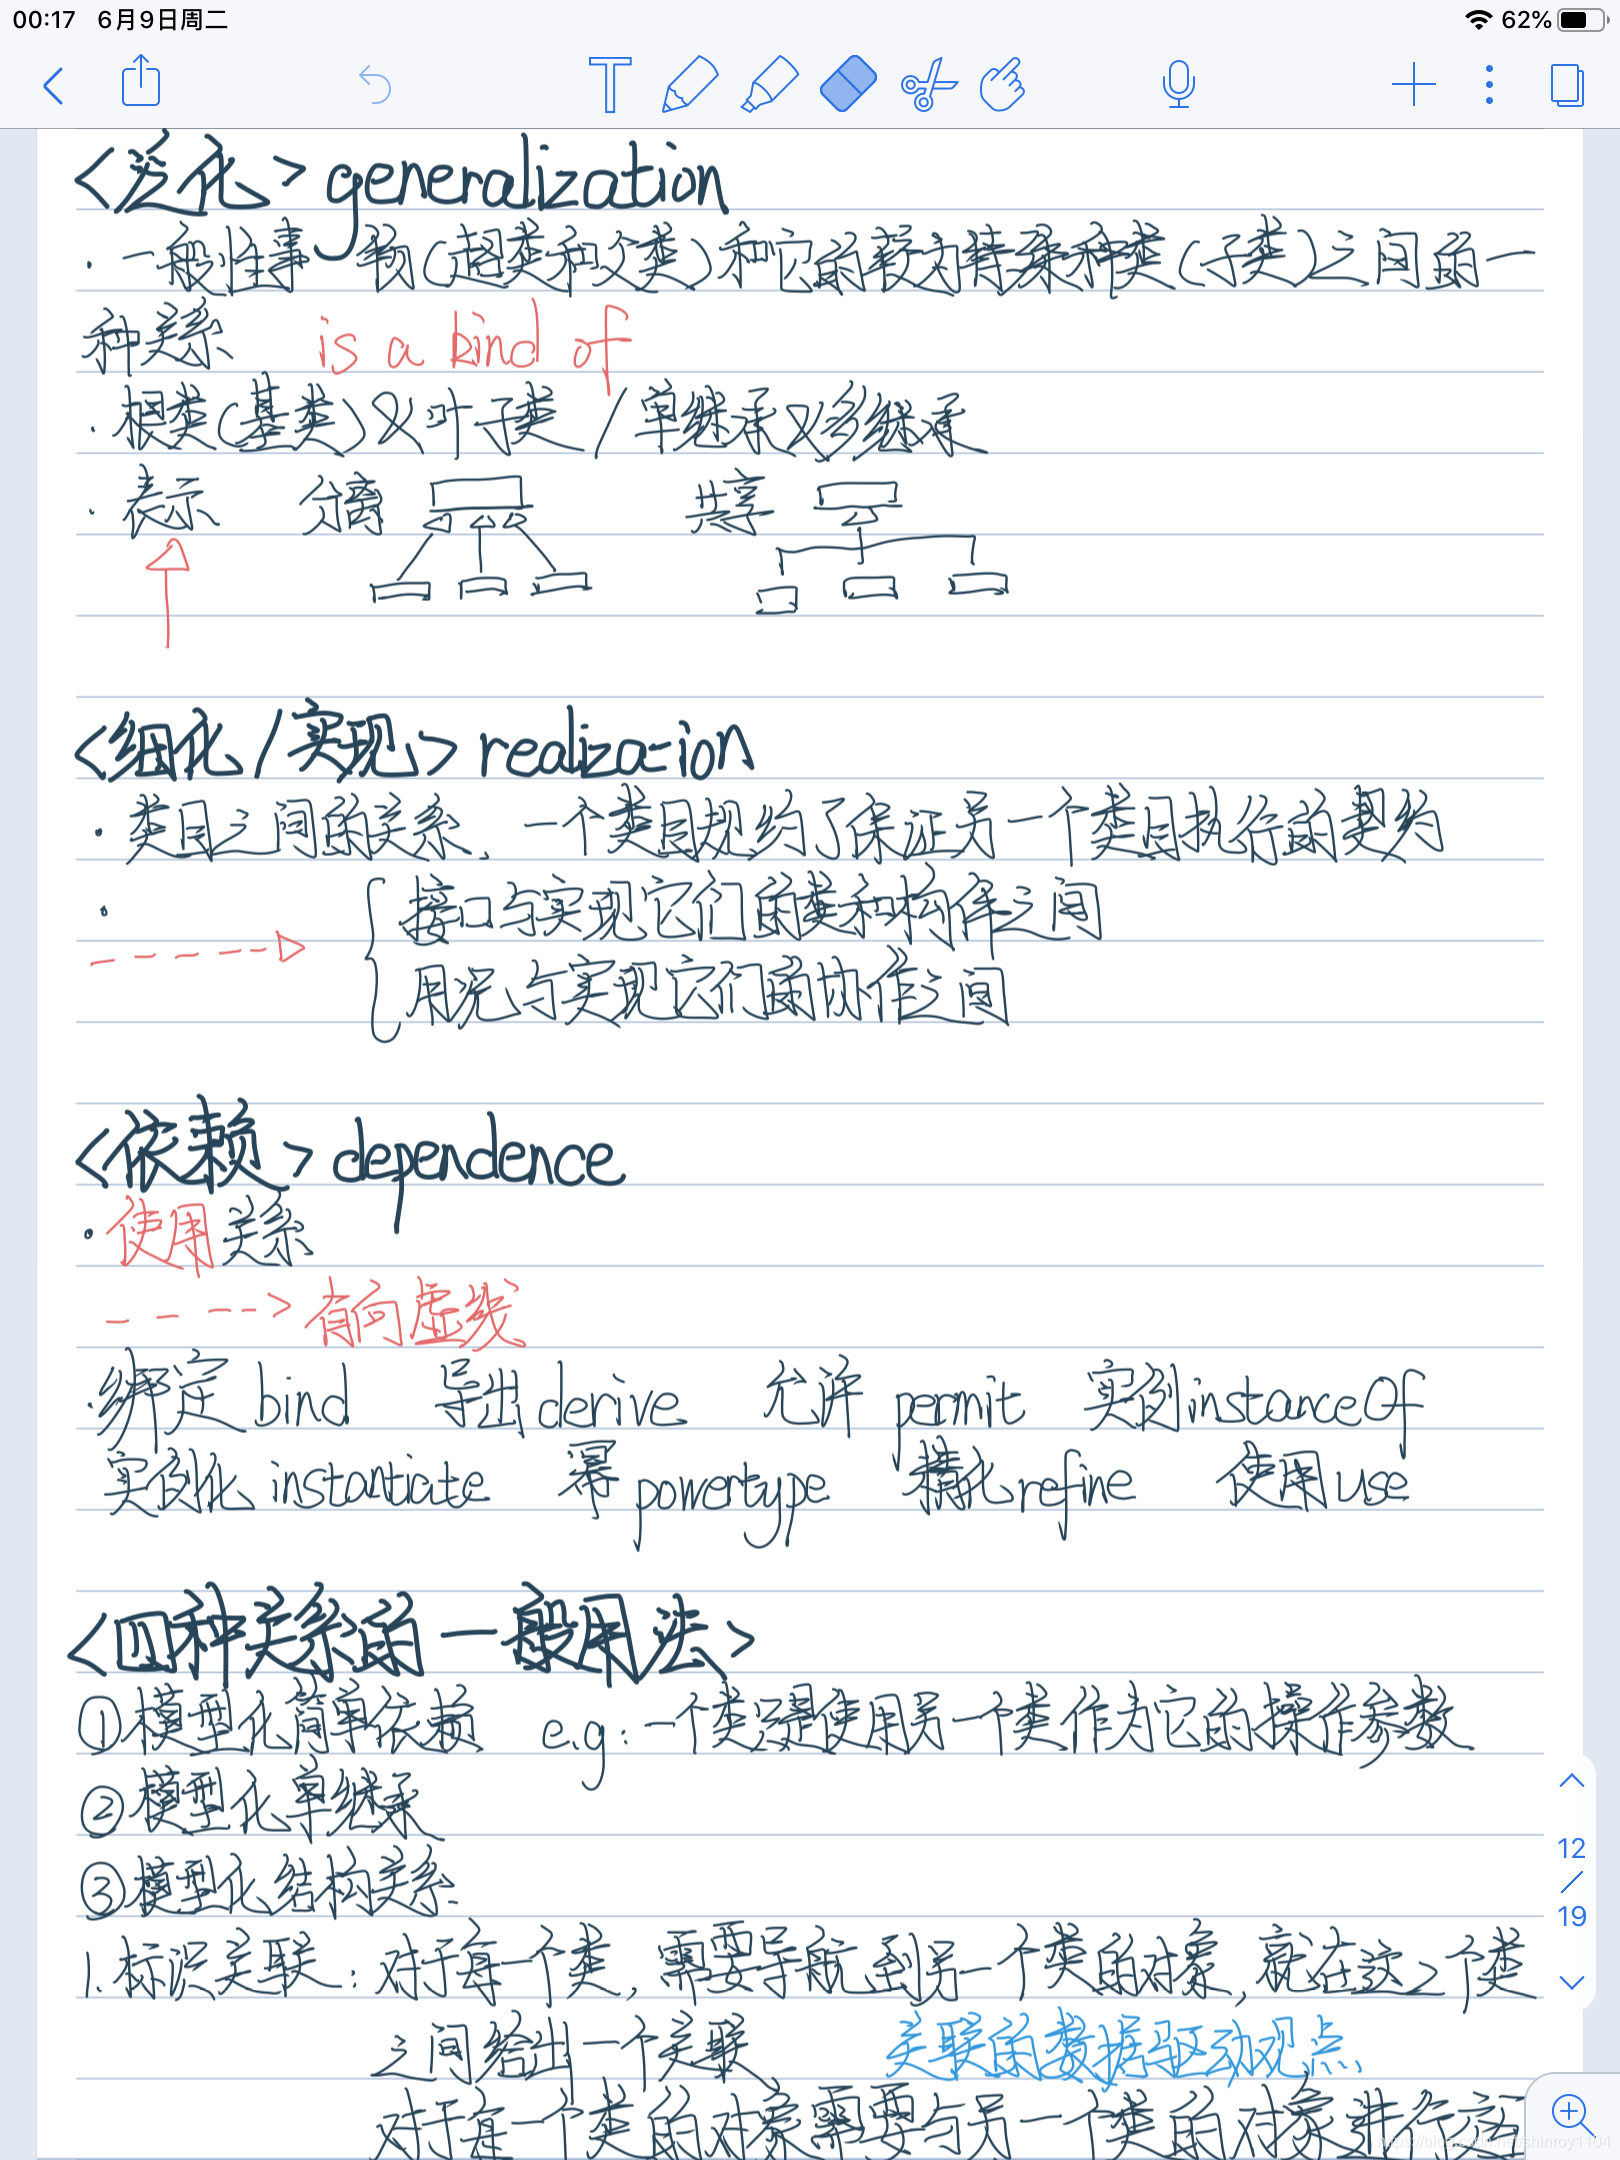 00:17 6月9日周二 62%
<泛化> generalization
·一般性事物(超类和父类)和它的较为特殊种类(子类)之间的一
种关系 is a kind of
·根类(基类)&叶子类/单继承&多继承
·表示 分离 共享
<细化/实现> realization
·类目之间的关系、一个类目规约了保证另一个类目执行的契约
·
接口与实现它们的类和构件之间
用况与实现它们的协作之间
<依赖> dependence
·使用关系
---->有向虚线
·绑定 bind 导出 derive 允许 permit 实例 instanceOf
实例化 instantiate 幂 powertype 精化 refine 使用 use
<四种关系的一般用法>
①模型化简单依赖 e.g:一个类只是使用另一个类作为它的操作参数
②模型化单继承
③模型化结构关系
1.标识关联:对于每一个类,需要导航到另一个类的对象,就在这2个类
之间给出一个关联 关联的数据驱动观点
对于每一个类的对象需要与另一个类的对象进行交互
12
/
19
https://blog.csdn.net/shinroy1104